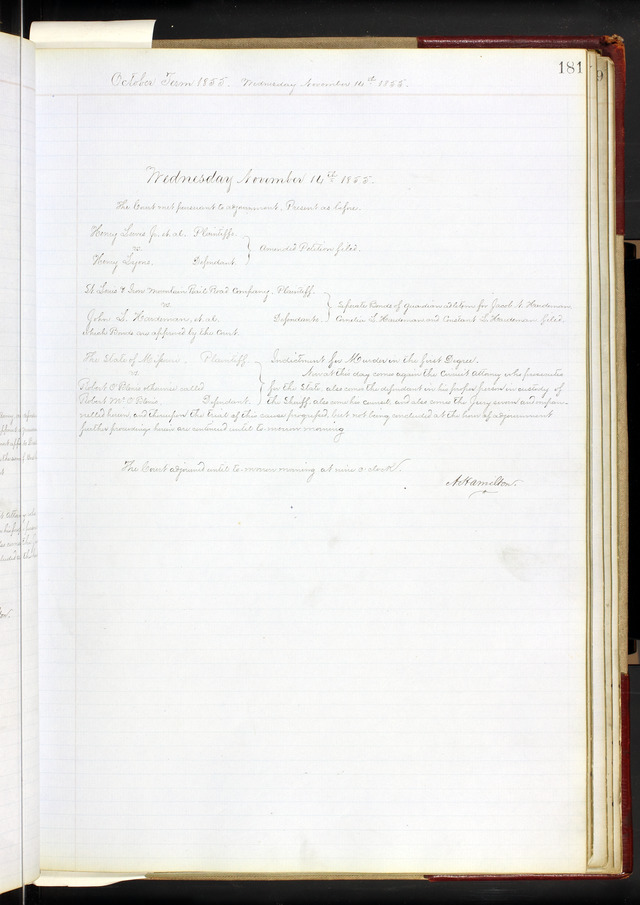 181
October Term 1855. Wednesday November 14th 1855.
Wednesday November 14th 1855.
The Court met pursuant to adjournment. Present as before.
Henry Jr. et al. Plaintiffs.
vs.
Henry Lyons. Defendant.
Amended Petition filed.
St. Louis & Iron Mountain Rail Road Company. Plaintiff.
vs.
John L. Hardeman, et al. Defendants.
Separate Bonds of Guardian ad litem for Jacob A. Hardeman
L. Hardeman and Constant L. Hardeman filed,
which Bonds are approved by the Court.
The State of Missouri. Plaintiff
vs.
Robert O'Blenis otherwise called
Robert McO'Blenis. Defendant.
Indictment for Murder in the First Degree.
Now at this day come again the Circuit Attorney who prosecutes
for the State, also comes the defendant in his proper person in custody of
the Sheriff, also come his counsel, and also comes the Jury sworn and impan-
nelled herein, and thereupon the trial of this cause progressed, but not being concluded at the hour of adjournment
further proceedings herein are continued until to morrow morning
The Court adjourned until to-morrow morning at nine o'clock.
A Hamilton.